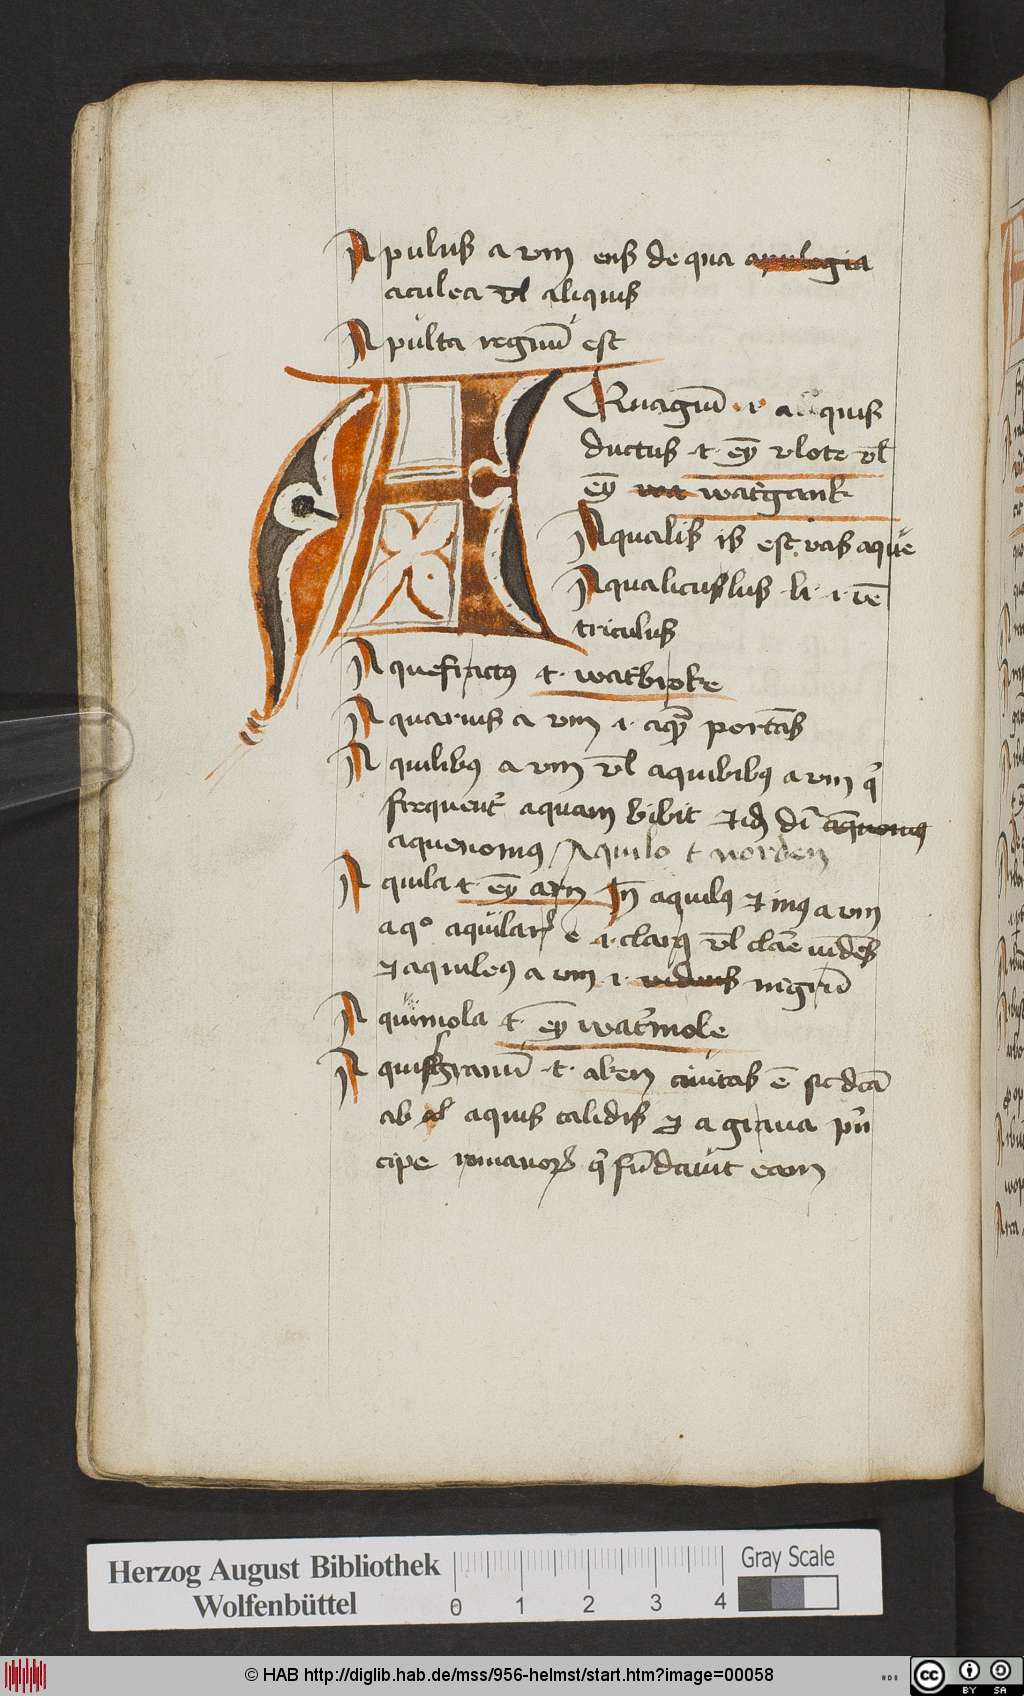 Apulus a vm ens de qua apulegia
aculea vl̄ aliquis
Apulta regnū est
AQuagiū .i. aliquis
ductus .t. eȳ vlote vl̄
eȳ wa wat'gank
Aqualis is est vas aque
Aqualiculus .li. .i. vē
triculus
Aquefractꝰ .t. wat'broke
Aquarius a vm .i. aquā portās
Aquilibꝰ a vm vl̄ aquibibꝰ a vm q'
frequent' aquam bibit ⁊ id' dr̄ aquenonꝰ
aquenomꝰ Aquilo t norden
Aquila .t. eȳ arn Jn̄ aquilꝰ ⁊ inꝰ a vm
a qº aquilar' e .i. clarꝰ vl̄ clare vidēs
⁊ aquileꝰ a vm .i. nigrū
Aquimola .t. eȳ wat'mole
Aquisgranū .t. aken ciuitas ē sic dcā
ab aquis calidis ⁊ a grana pn̄
cipe romanor' q' fūdauit eam
Herzog August Bibliothek
Wolfenbüttel
0 1 2 3 4
Gray Scale
© HAB http://diglib.hab.de/mss/956-helmst/start.htm?image=00058
cc BY SA